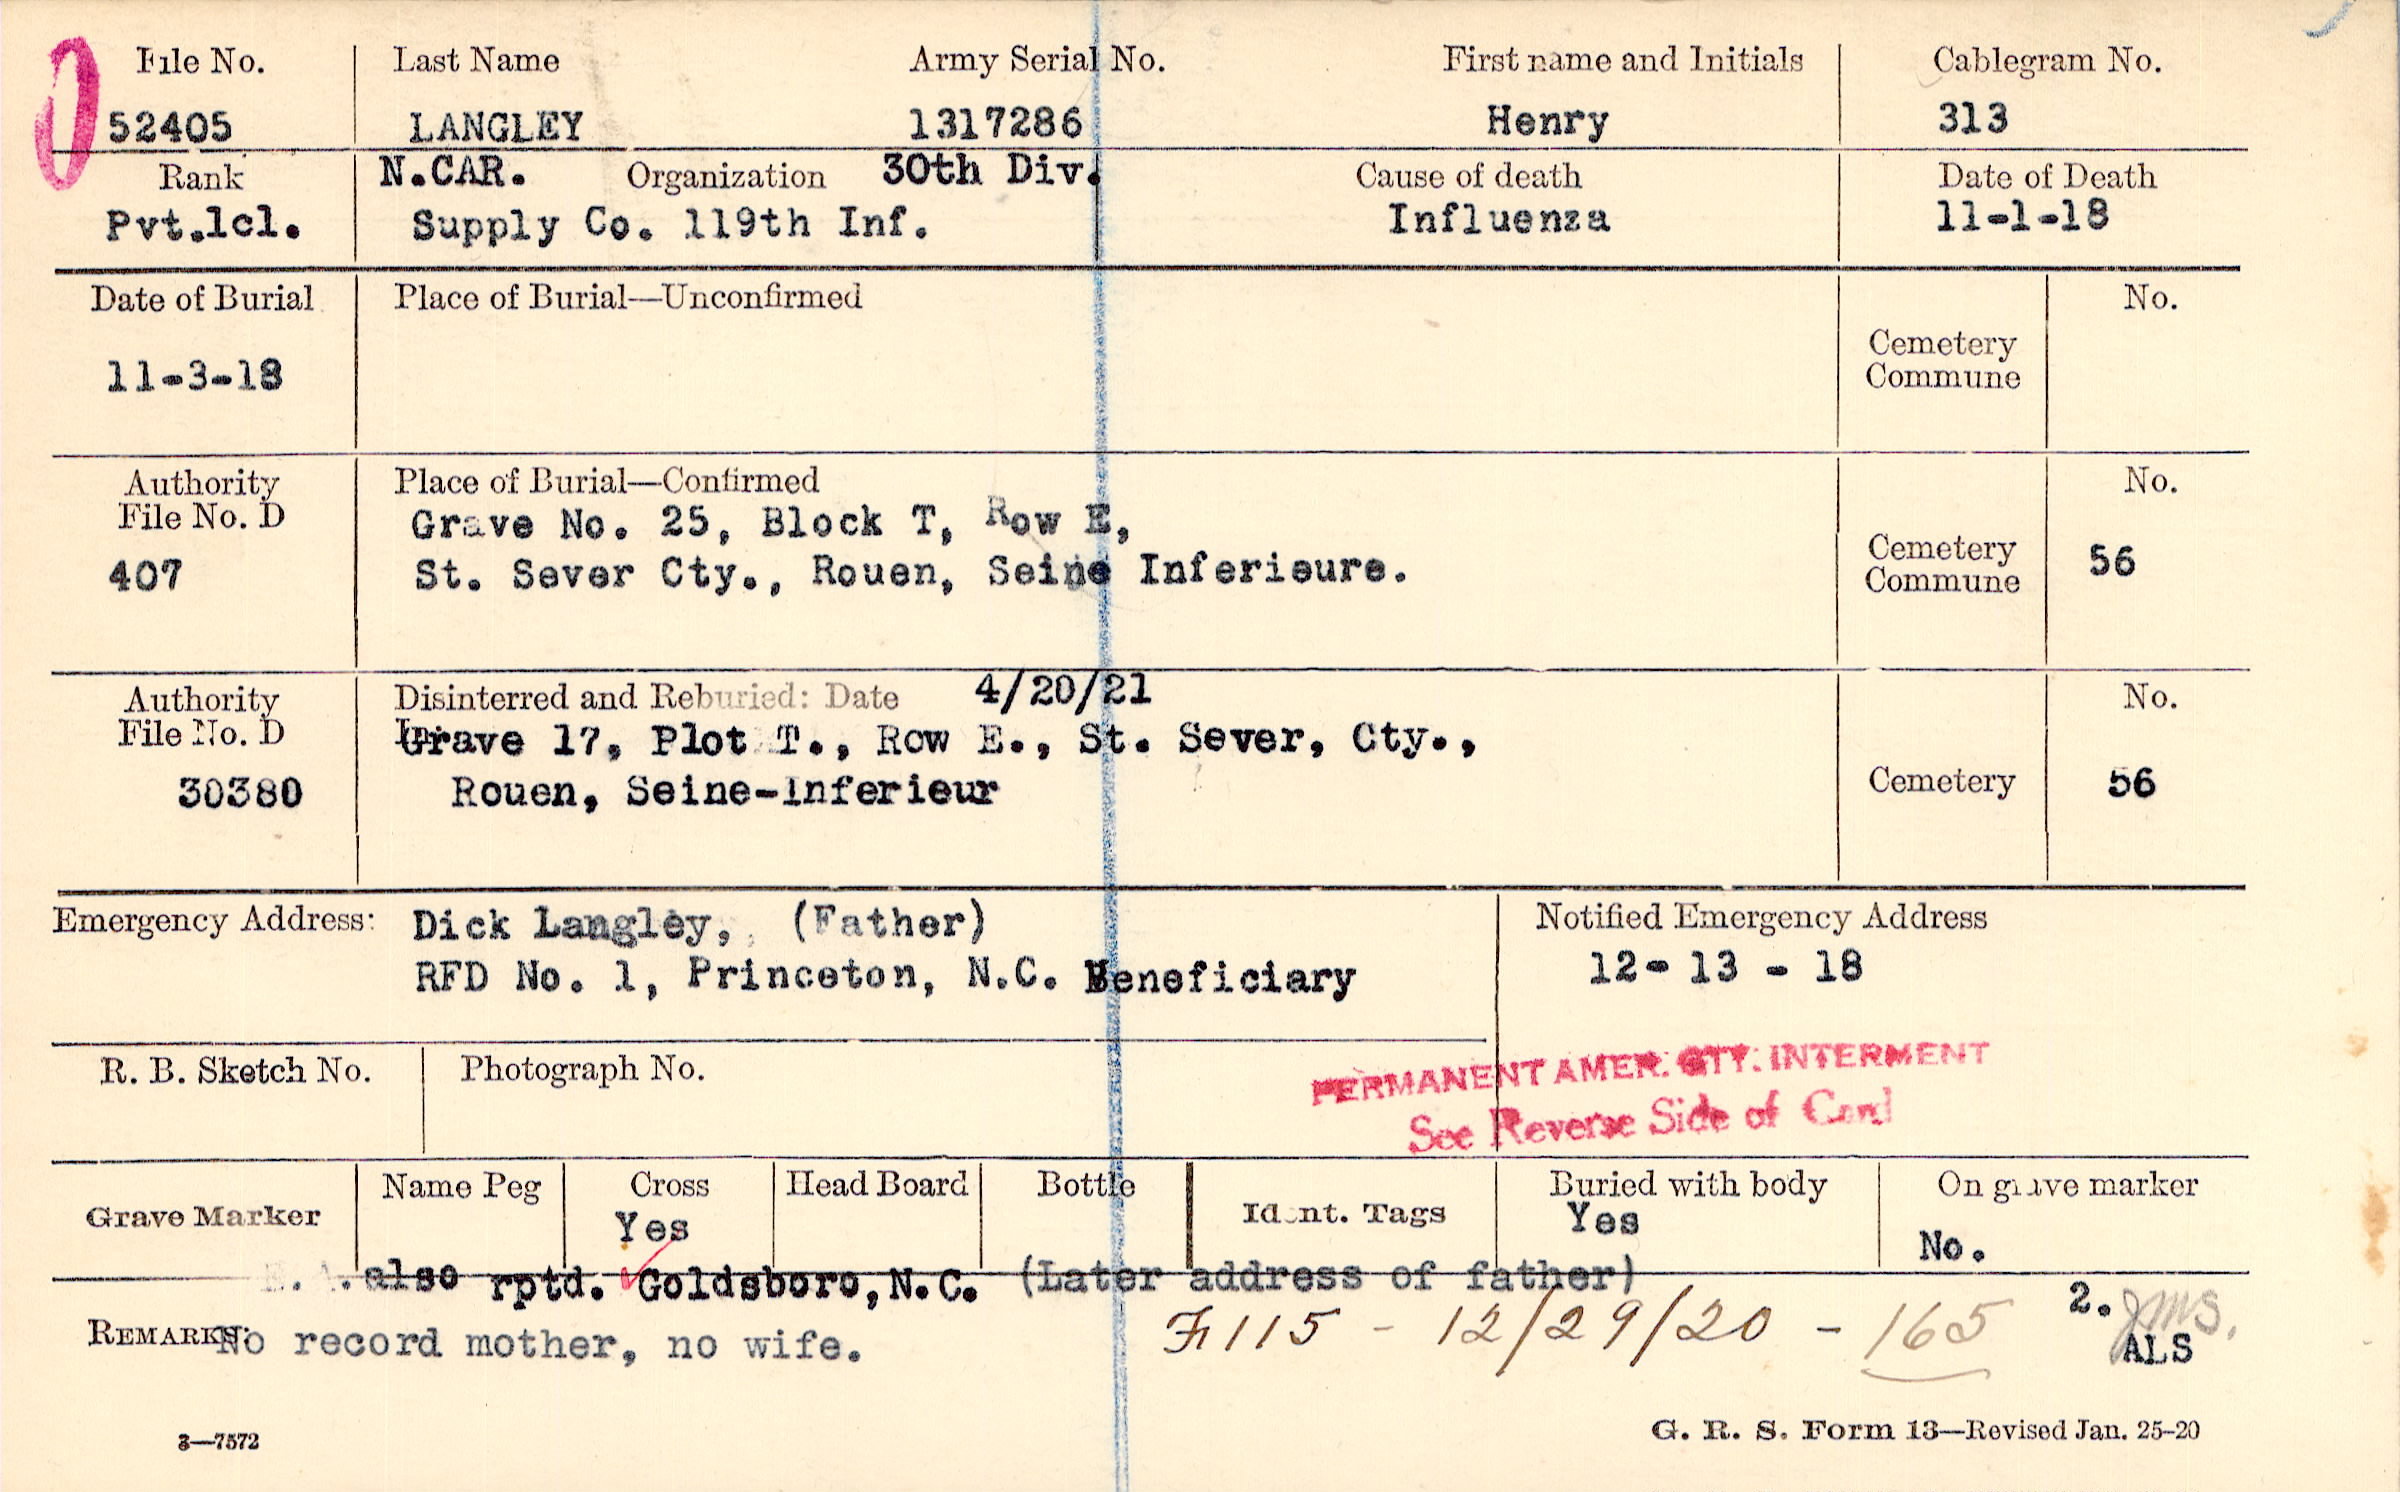 File No. Last Name Army Serial No. First name and Initials Cablegram No.
52405 LANGLEY 1317286 Henry 313
Rank N.CAR. Organization 30th Div. Cause of death Date of Death
Pvt.lcl. Supply Co. 119th Inf. Influenza 11-1-18
Date of Burial Place of Burial—Unconfirmed No.
11-3-18 Cemetery
Commune
Authority Place of Burial—Confirmed No.
File No. D Grave No. 25, Block T, Row E,
407 St. Sever Cty., Rouen, Seine Inferieure. Cemetery 56
Commune
Authority Disinterred and Reburied: Date 4/20/21 No.
File No. D Grave 17, Plot T., Row E., St. Sever, Cty.,
30380 Rouen, Seine-Inferieur Cemetery 56
Emergency Address: Dick Langley, (Father) Notified Emergency Address
RFD No. 1, Princeton, N.C. Beneficiary 12- 13 - 18
R. B. Sketch No. Photograph No.
PERMANENT AMER. CTY. INTERMENT
See Reverse Side of Card
Grave Marker Name Peg Cross Head Board Bottle Ident. Tags Buried with body On grave marker
Yes Yes No.
also rptd. Goldsboro, N.C. (Later address of father)
REMARKS: No record mother, no wife. 115 - 12/29/20 - 165 2. JMS.
ALS
3—7572 G. R. S. Form 13—Revised Jan. 25-20